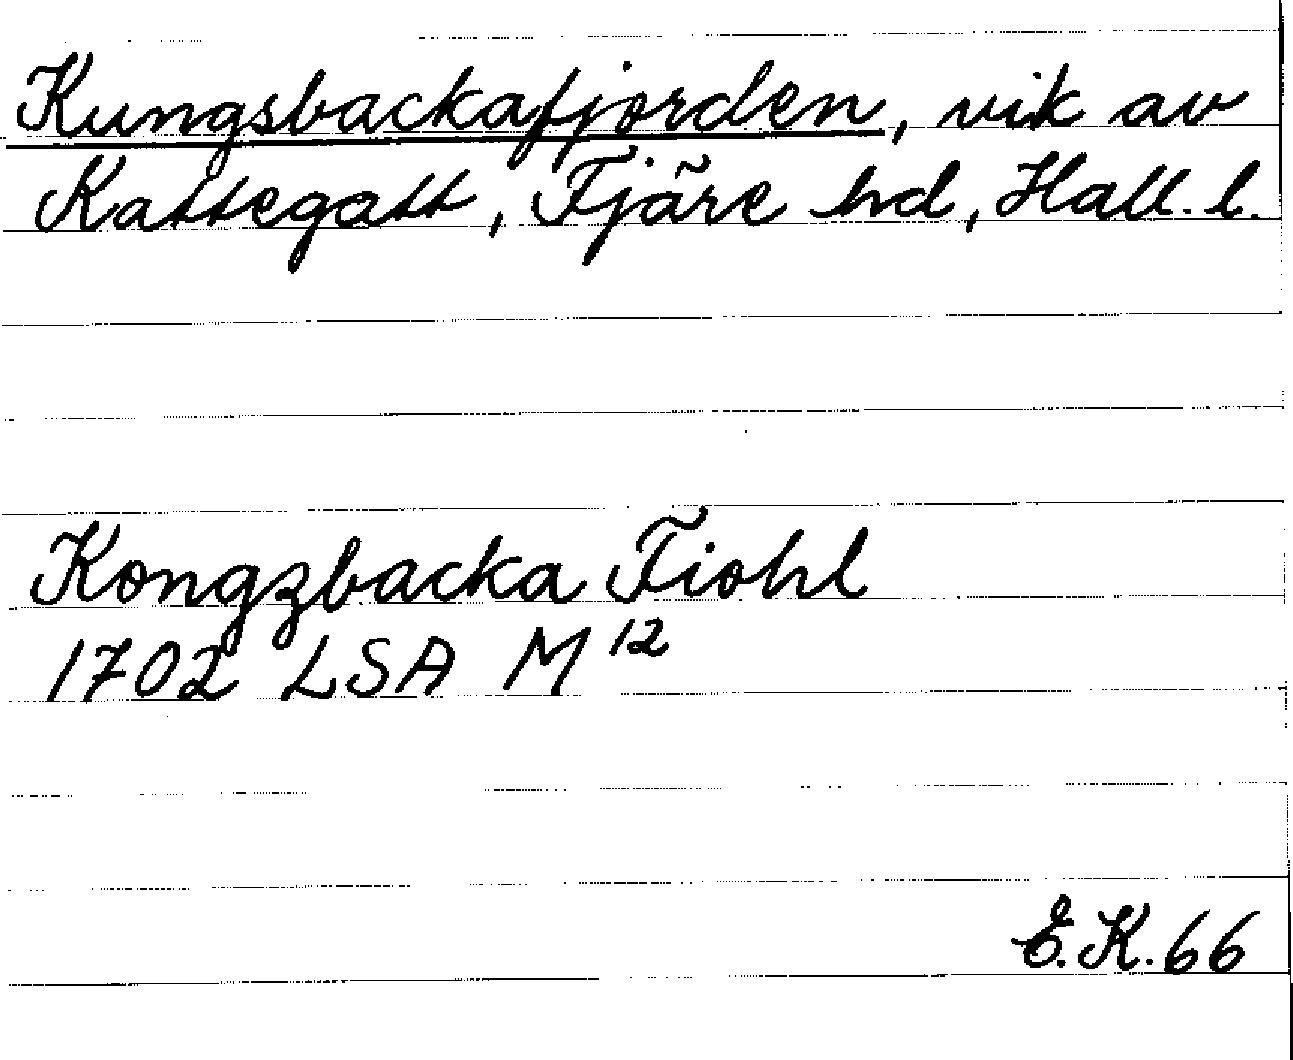 Kungsbackafjorden, vik av
Kattegatt, Fjäre hd, Hall. l.
Kongzbacka Fiohl
1702 LSA M 12
E.K. 66